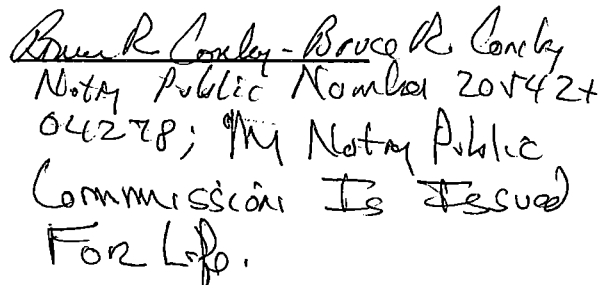 Bruce R. Conley - Bruce R. Conley
Notary Public Number 2018427
04278; My Notary Public
Commission Is Issued
For Life.